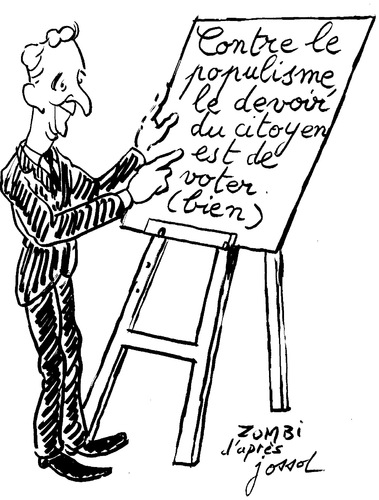 Contre le
populisme,
le devoir
du citoyen
est de
voter
(bien)
ZOMBI
d'après
jossot